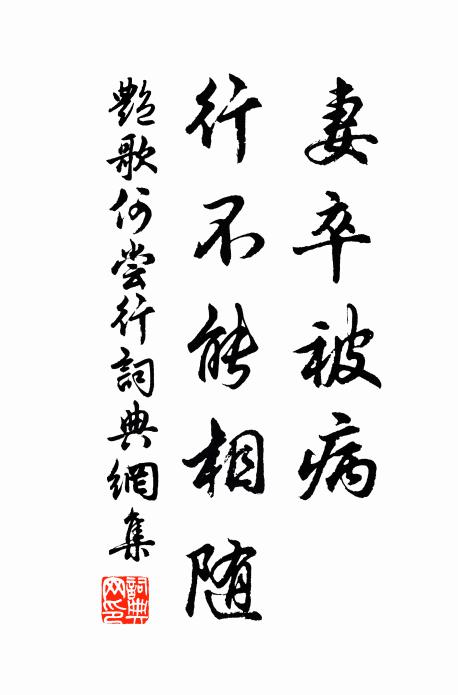 妻卒被病
行不能相随
艷歌何嘗行詞典網集
詞典
网印